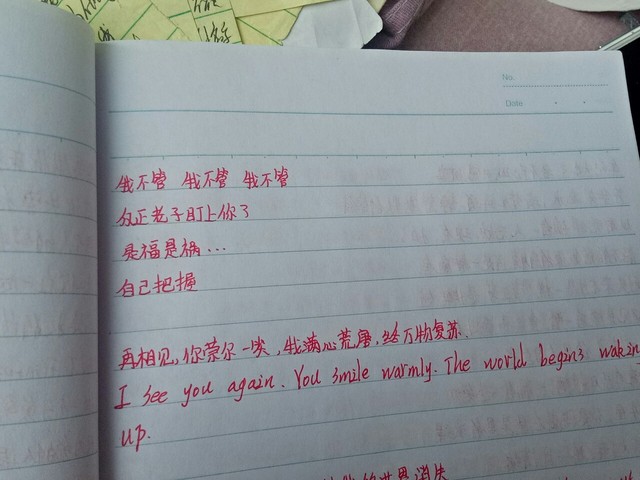 No.
Date
我不管 我不管 我不管
反正老子盯上你了
是福是祸...
自己把握
再相见,你荣尔一笑,我满心荒唐,终万物复苏.
I see you again. You smile warmly. The world begins wakin
up.
的世界消失